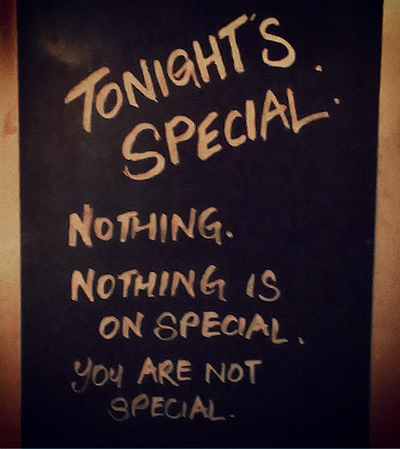 TONIGHT'S
SPECIAL.
NOTHING.
NOTHING IS
ON SPECIAL.
YOU ARE NOT
SPECIAL.